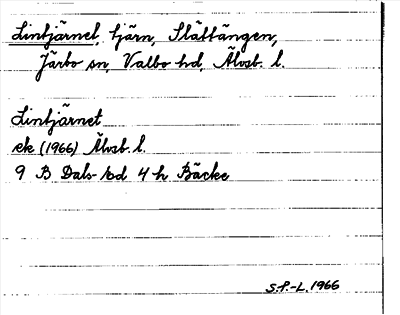 Lintjärnet, tjärn, Slättängen,
Järbo sn, Valbo hd, Älvsb. l.
Lintjärnet
ek (1966) Älvsb. l.
9 B Dals-Ed 4 h Bäcke
S.P.-L. 1966